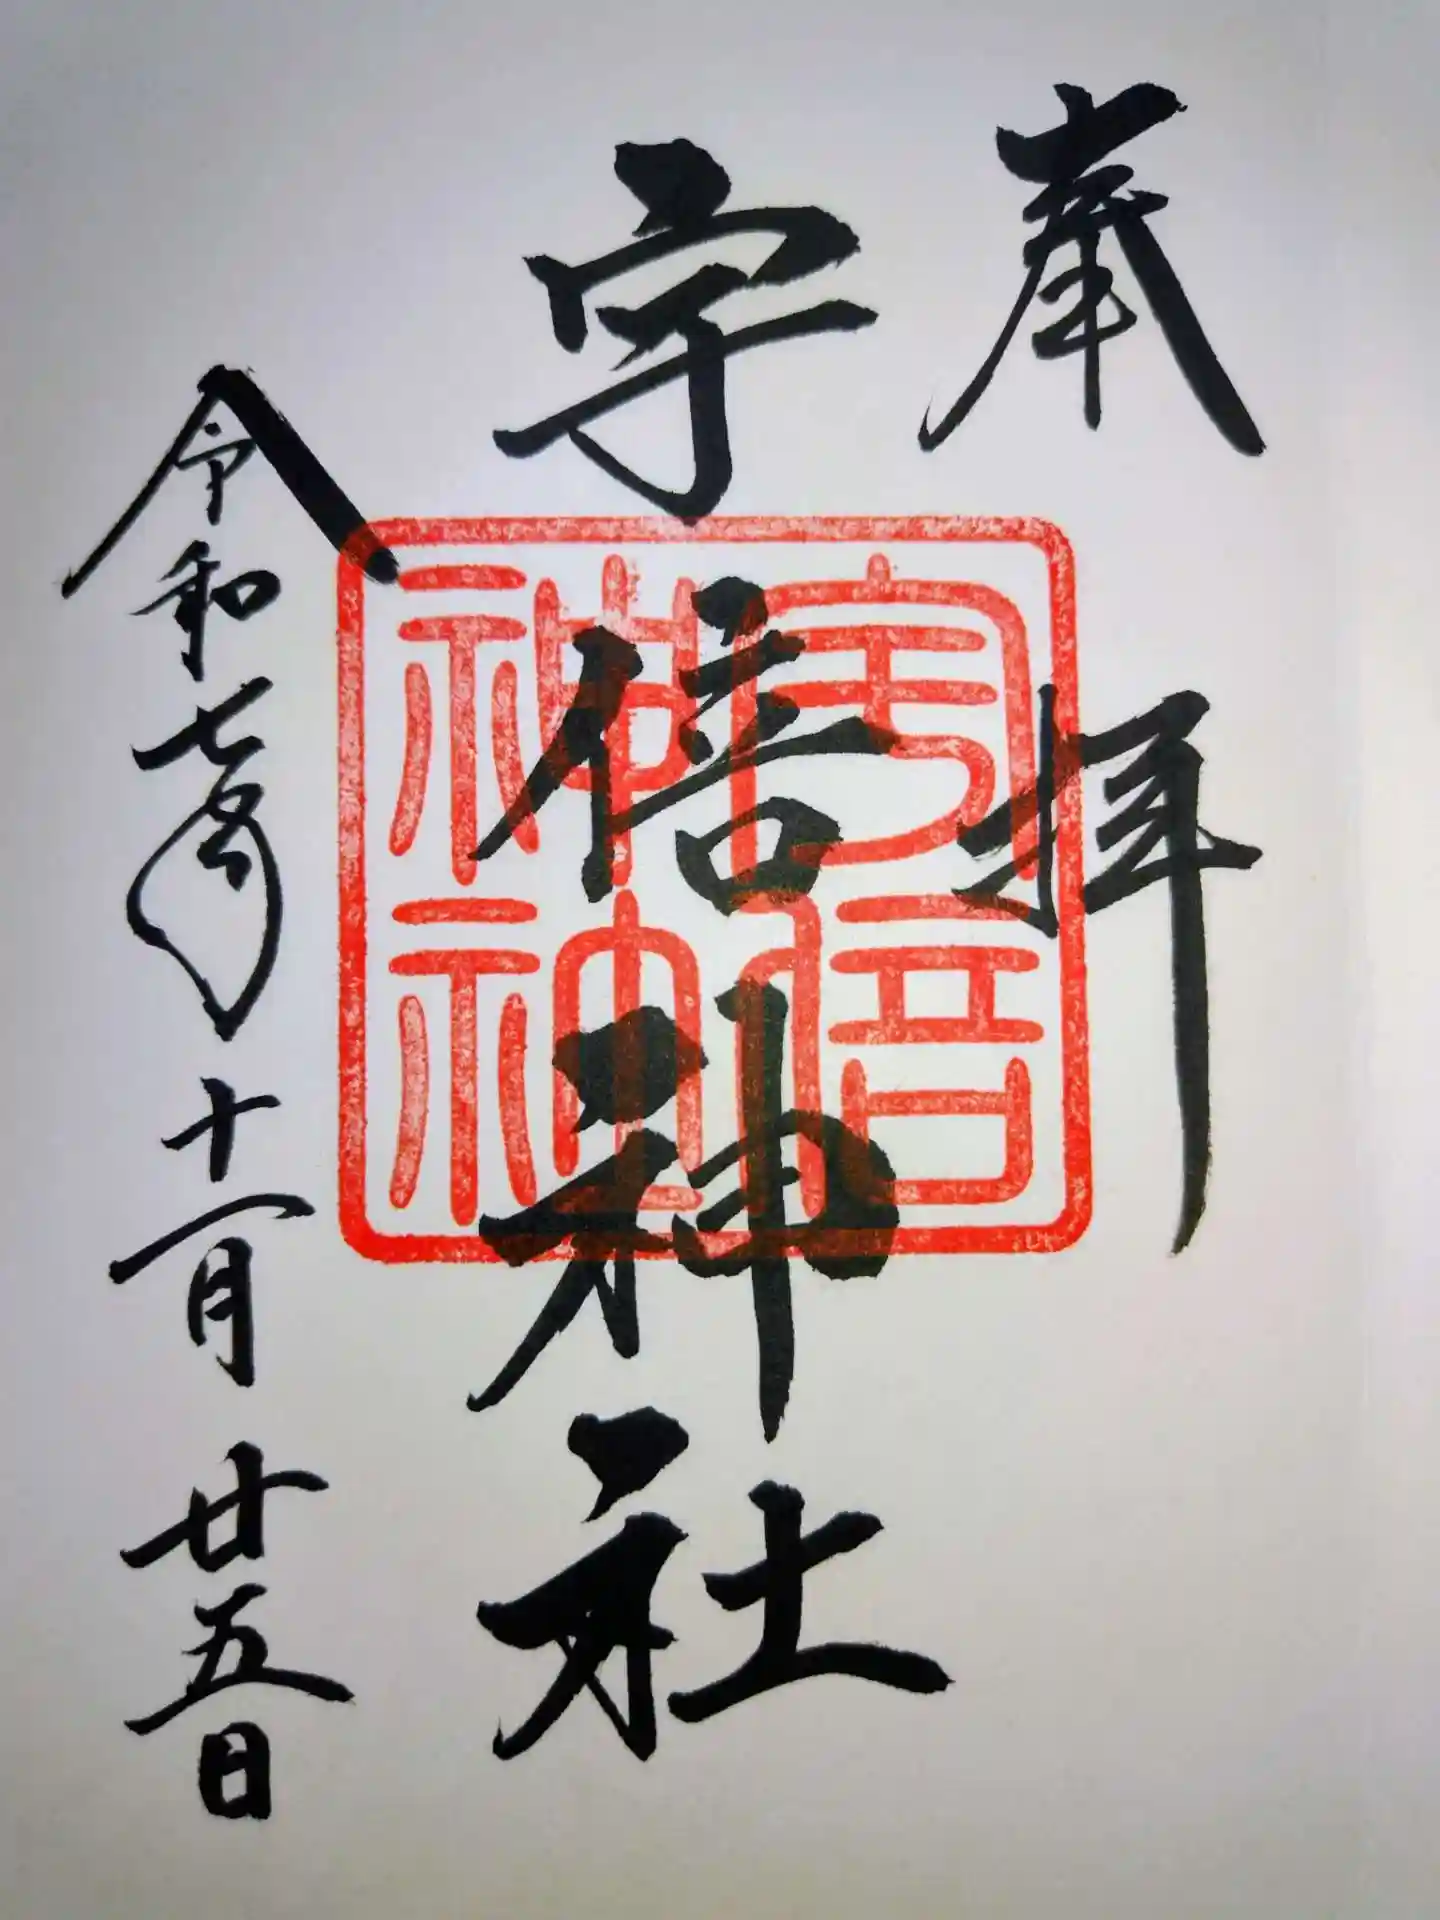 奉拝
宇倍神社
宇倍神社
令和七年十一月廿五日